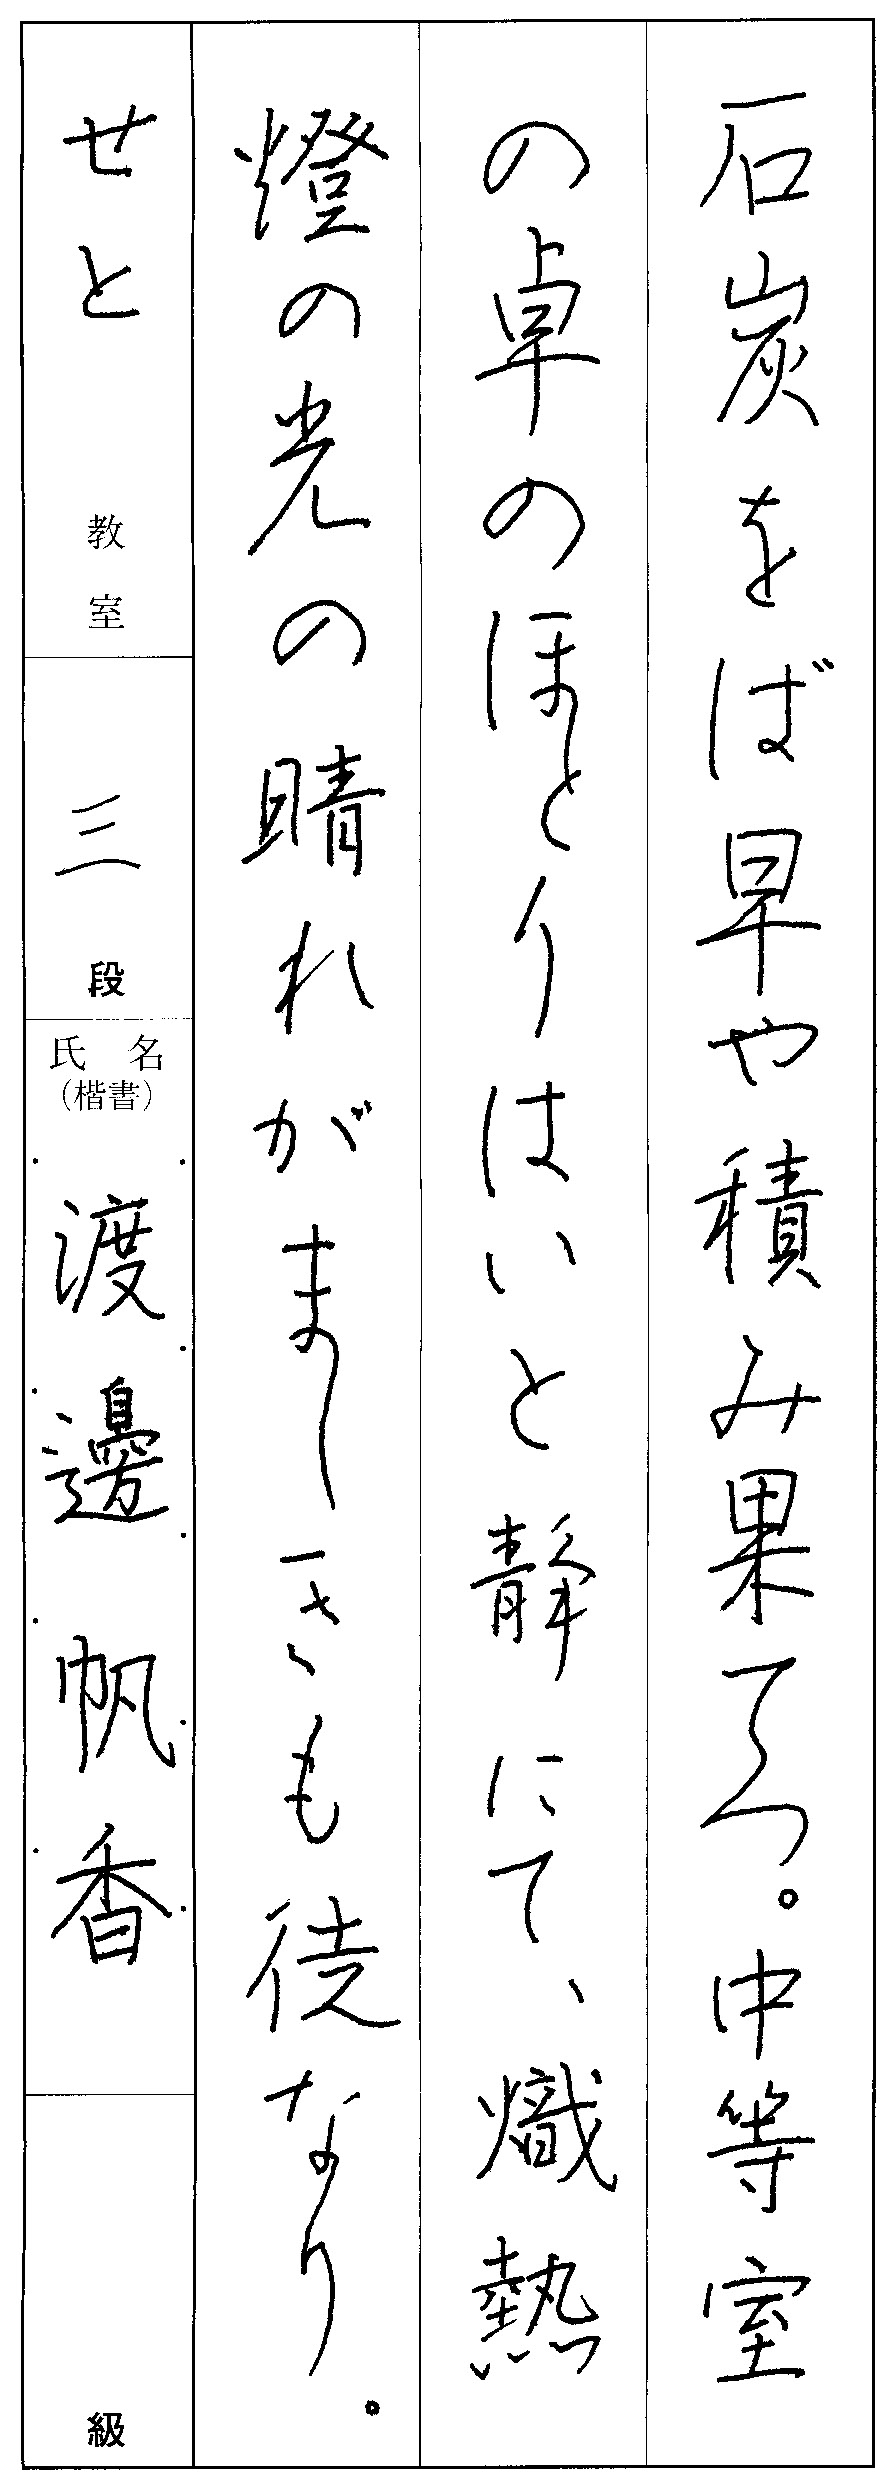 石炭をば早や積み果てつ。中等室
の卓のほとりはいと静にて、熾熱
燈の光の晴れがましきも徒なり。
せと 教室
三 段
氏名
(楷書)
渡邊帆香
級